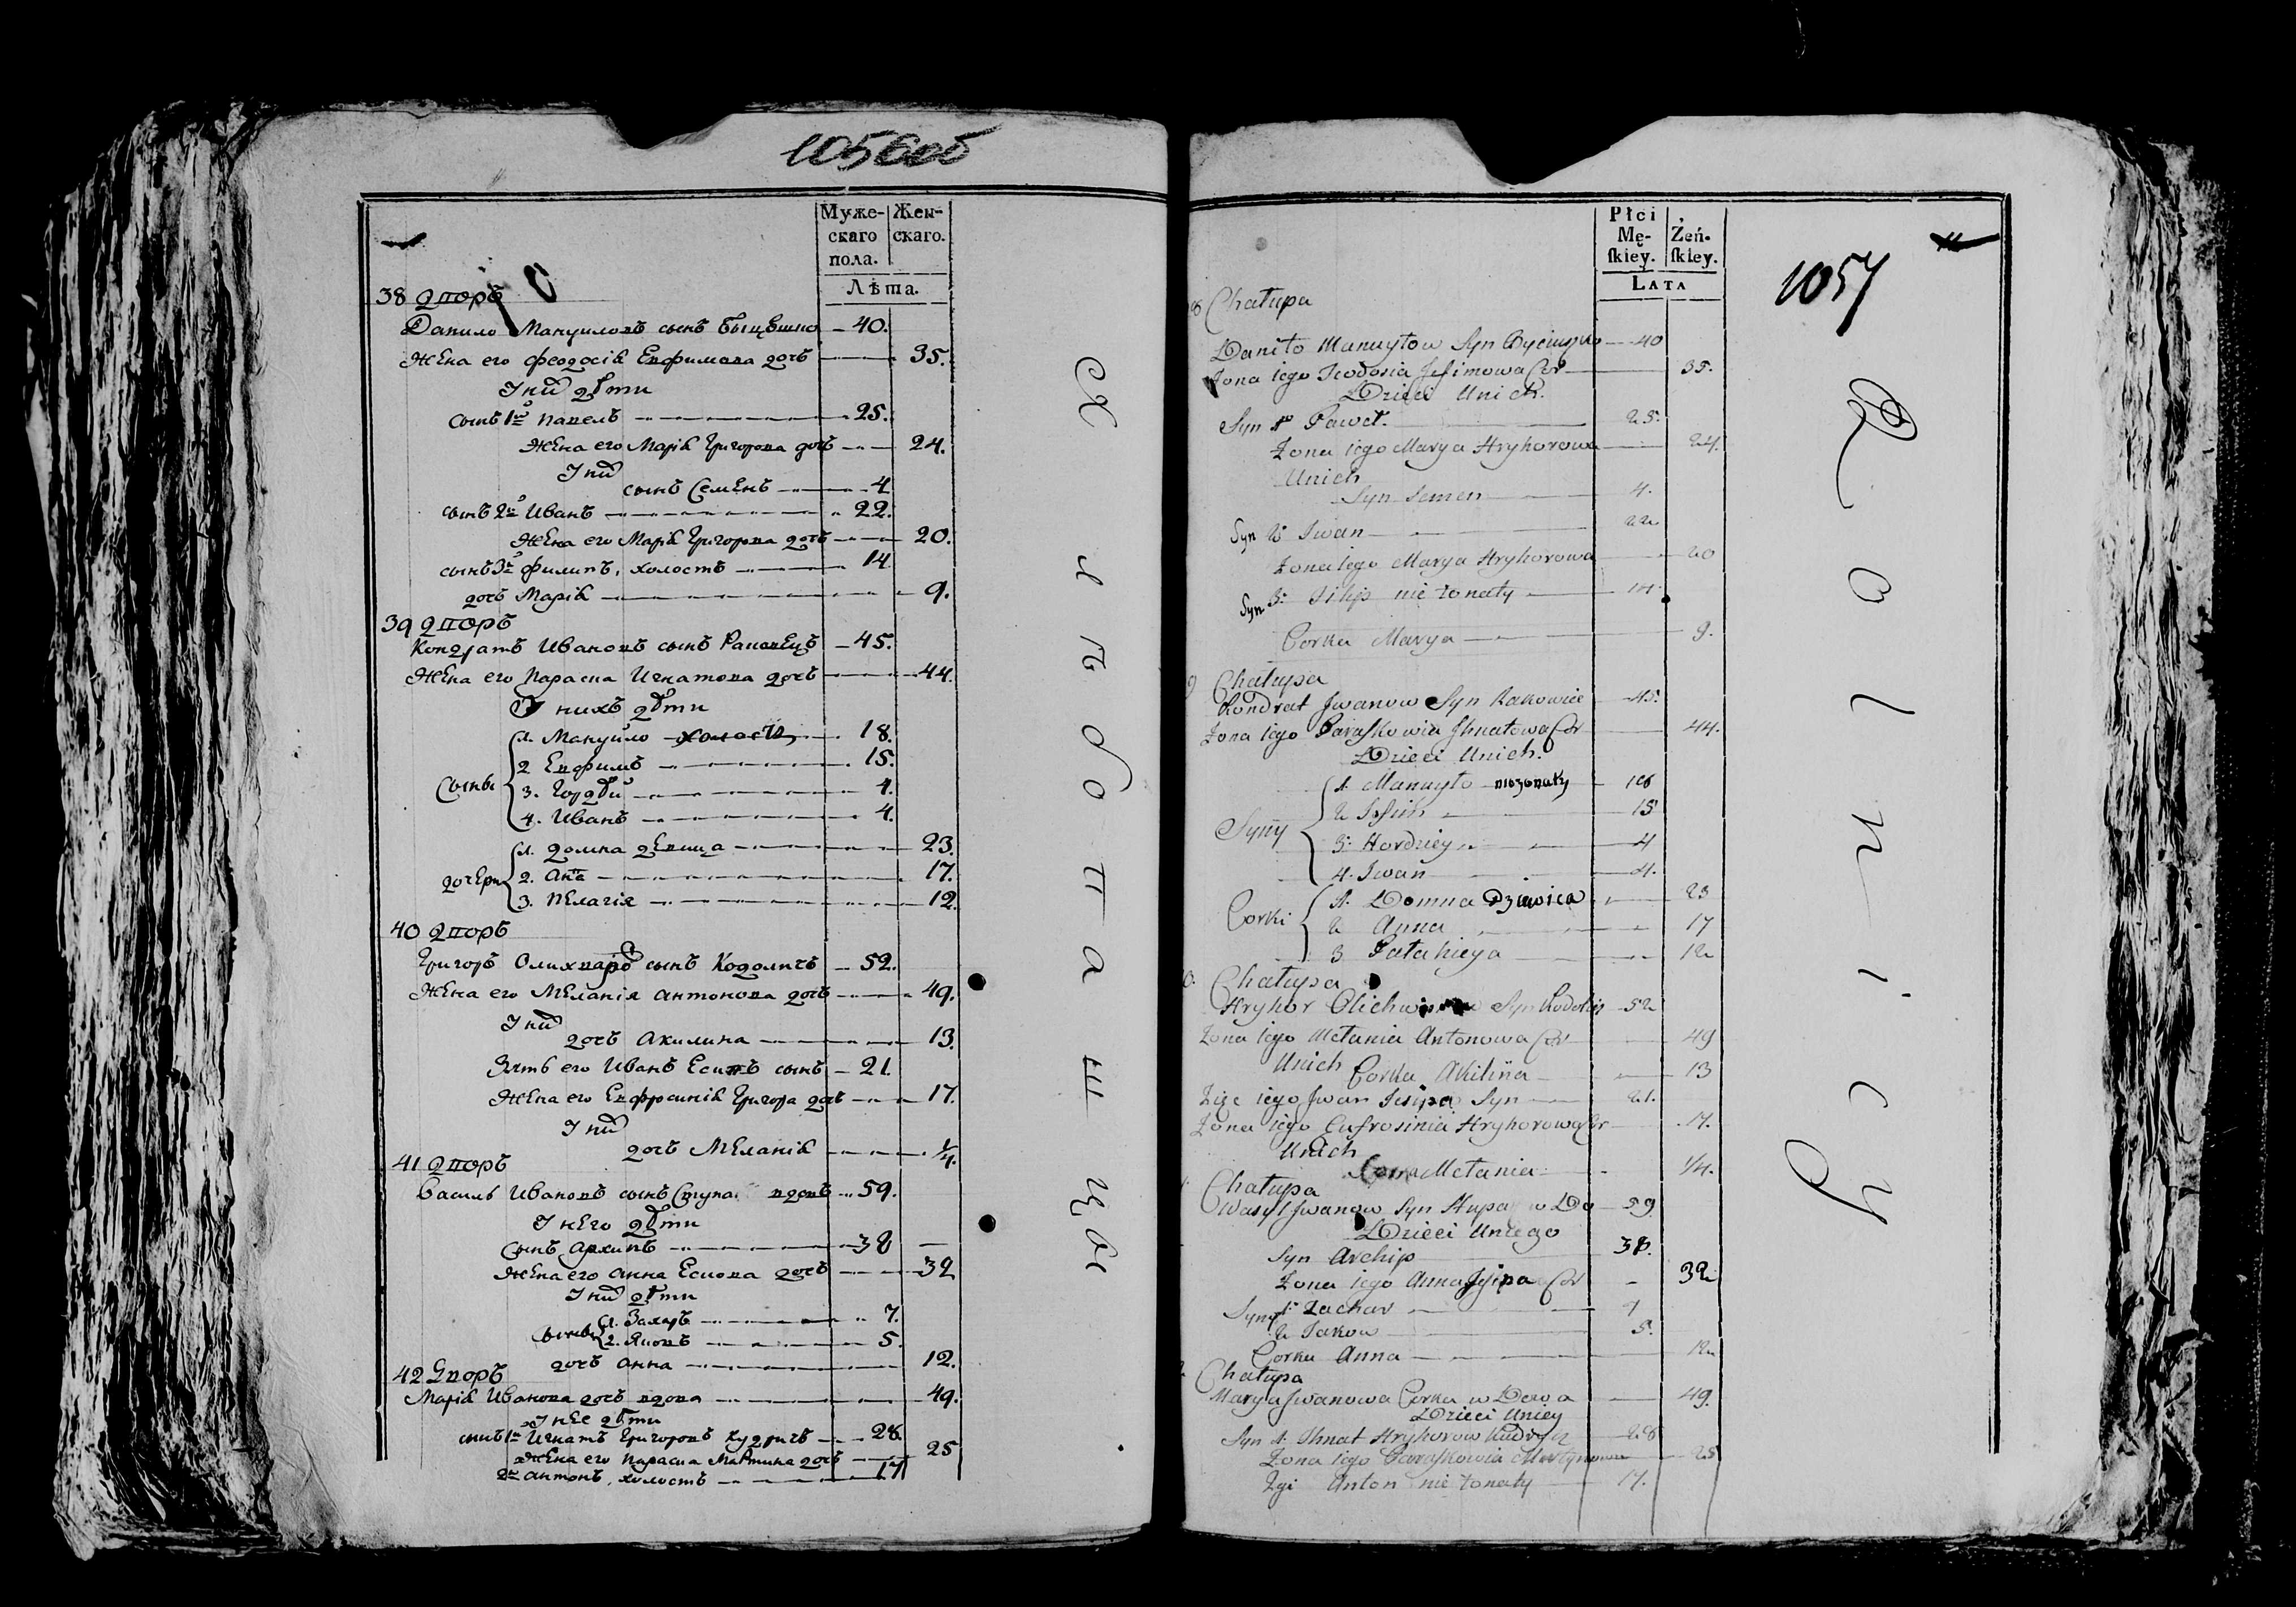 1056об
Муже-
скаго
пола.
Жен-
скаго.
Лѣта.
38 дворъ
Данило Мануиловъ сынъ — 40.
Жена его Феодосія Евфимова дочь — 35.
У них дѣти
сынъ 1й Павелъ — 25.
Жена его Марія Григорова дочь — 24.
У них
сынъ Семенъ — 4
сынъ 2й Иванъ — 22.
Жена его Марія Григорова дочь — 20.
сынъ 3й Филипъ, холостъ — 14
дочь Марія — 9.
39 дворъ
Кондратъ Ивановъ сынъ Раковецъ — 45.
Жена его Параска Игнатова дочь — 44.
У нихъ дѣти
Сыны
1. Мануйло холостъ — 18.
2 Евфимъ — 15.
3. Гордѣй — 4.
4. Иванъ — 4.
дочери
1. Домна девица — 23.
2. Анна — 17.
3. Пелагія — 12.
40 дворъ
Григоръ сынъ — 52.
Жена его Меланія Антонова дочь — 49.
У них
дочь Акилина — 13.
Зять его Иванъ Есипъ сынъ — 21.
Жена его Евфросинія Григора дочь — 17.
У них
дочь Меланія — 1/4.
41 дворъ
Василь Ивановъ сынъ Ступа вдовъ — 59.
У него дѣти
Сынъ Архипъ — 38
Жена его Анна Есипова дочь — 32
У них дѣти
Сыновья
1. Захаръ — 7.
2. Яковъ — 5.
дочь Анна — 12.
42 Дворъ
Марія Иванова дочь вдова — 49.
У нее дѣти
сынъ 1й Игнатъ Григоровъ Кудричъ — 28.
Жена его Параска Мартина дочь — 25
2й Антонъ, холостъ — 17
Хлѣбопашцы
Płci
Mę-
ſkiey.
Żeń-
ſkiey.
LATA
1057
Chałupa
Daniło Manuyłow Syn — 40
Żona iego Teodosia Jefimowa Cor — 35.
Dzieci Unich.
Syn 1. Paweł. — 25.
Żona iego Marya Hryhorowa — 24.
Unich
Syn Semen — 4.
Syn 2. Iwan — 22
Żona iego Marya Hryhorowa — 20
Syn 3. Filip nie żonaty — 14
Corka Marya — 9.
Chałupa
Kondrat Iwanow Syn Rakowiec — 45.
Żona iego Paraſkowia Ihnatowa Cor — 44.
Dzieci Unich.
Syny
1. Manuyło niezonaty — 18
2 Jefim — 15
3. Hordziey — 4
4. Iwan — 4.
Corki
1. Domna Dziewica — 23
2 Anna — 17
3 Pałahieya — 12
Chałupa
Hryhor Syn — 52
Żona iego Mełania Antonowa Cor — 49
Unich Corka Akilina — 13
Zięć iego Iwan Syn — 21.
Żona iego Eufrosinia Hryhorowa Cor — 17.
Unich
Corka Mełania — 1/4.
Chałupa
Wasyl Iwanow Syn Stupa wDo — 59
Dzieci Uniego
Syn Archip — 38.
Żona iego Anna Cor — 32
Syny
1. Zachar — 7
2 Jakow — 5.
Corka Anna — 12
Chałupa
Marya Iwanowa Corka wDowa — 49.
Dzieci Uniey
Syn 1. Ihnat Hryhorow Kudrycz — 28
Żona iego Paraſkowia Martynowa — 25
2gi Anton nie żonaty — 17.
Rolnicy